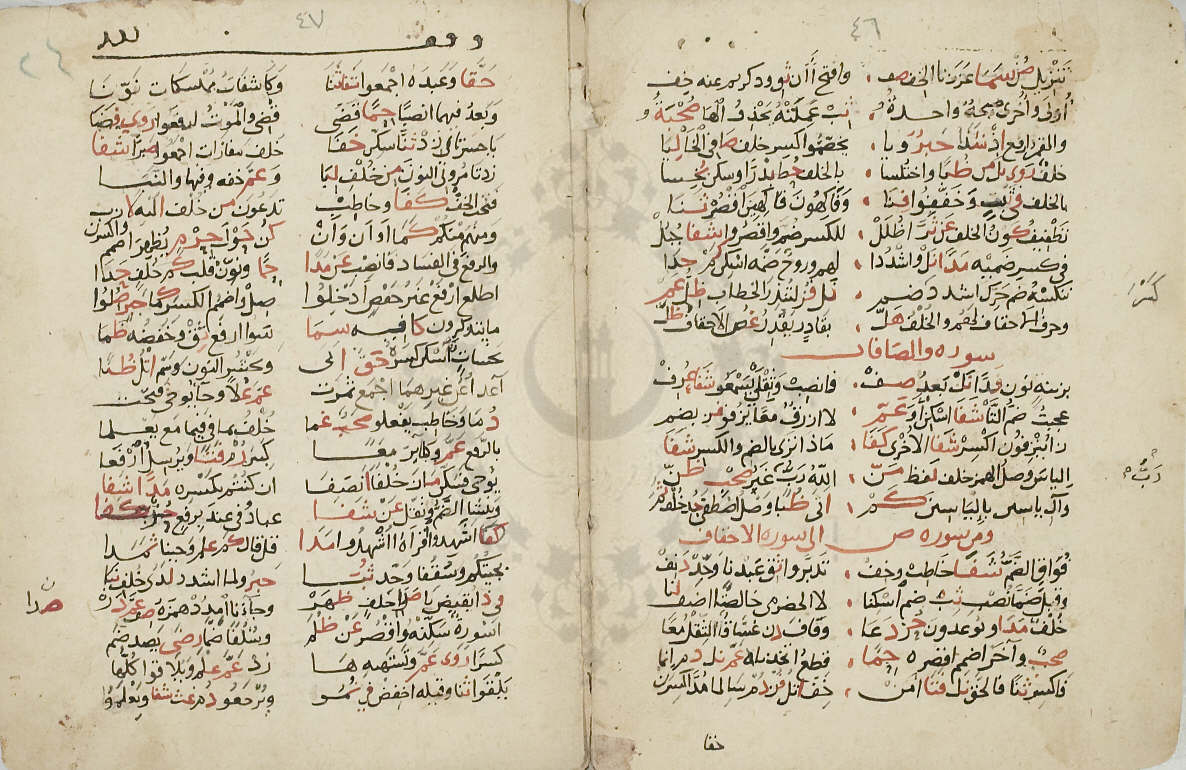 ٤٦
تنزيل صن سما عززنا الخف صف ، وافتح أأن ثق وذكرتم عنه خف
أولى وأخرى صيحة واحدة ، ثب عملته بحذف الها صحبة و
والقمر ارفع إذ شذا حبر ويا ، يخصموا اكسر خلف صافي الخا ليا
خلف روى نل من ظبا واختلسا ، بالخلف حط بدرا وسكن بخسا
بالخلف في ثبت وخففوا فنا ، وفاكهون فاكهين اقصر ثنا
تطفيف كون الخلف عن ثرا ظلل ، للكسر ضم واقصروا شفا جبل
في كسر ضميه مدا نل واشددا ، لهم وروح ضمه اسكن كم حدا
ننكسه ضم حرك اشدد ضم ، نل فز لينذر الخطاب ظل عم
كسر
وحرف الاحقاف لهم والخلف هل ، بقادر يقدر غص الاحقاف ظل
سورة والصافات
بزينة نون فدا نل بعد صف ، فانصب وثقلي يسمعو شفا عرف
عجبت ضم التا شفا اسكن أو عم ، لا ازرق معا يزفو فز بضم
زا ينزفون اكسر شفا الاخرى كفا ، ماذا ترى بالضم والكسر شفا
إلياس وصل الهمز خلف لفظ من ، الله رب غير صحب ظن
رب
وآل ياسين بإلياسين كم ، أتى ظبا وصل اصطفى جد خلف ثم
ومن سورة ص الى سورة الاحقاف
فواق الضم شفا خاطب وخف ، تدبروا ثق عبدنا وحد دنف
وقبل ضما نصب ثب ضم اسكنا ، لا الحضرمي خالصة اضف لنا
خلف مدا ويوعدون حز دعا ، وقاف دن غساق الثقل معا
صحب وآخر اضمم اقصره حما ، قطع اتخذنا عم نل دم انما
فاكسر ثنا فالحق نل فتا امن ، خف اتل فز دم سالما مد اكسرن
حقا
٤٧
وقف لله
حقا وعبده اجمعوا شفا ثنا وكاشفات ممسكات نونا
وبعد فيهما انصبا حما قضى قضي والموت ارفعوا روى فضا
يا حسرتاي زد ثنا سكن خفا خلف مفازات اجمعوا صبرا شفا
زد تأمروني النون من خلف لبا وعم خفه وفيها والنبا
فتحت الخف كفا وخاطب تدعون من خلف اليه لازب
ومنهم منكم كما أو أن وأن كن حول حرم يظهر اضمم واكسرن
والرفع في الفساد فانصب عن مدا حما ونون قلب كم خلف حدا
اطلع ارفع غير حفص ادخلوا صل واضمم الكسر كما حبر صلوا
ما يتذكرون كافيه سما سواء ارفع ثق وخفضه ظما
نحسات اسكن كسره حق ابى ويحشر النون وسم اتل ظبا
أعداء عن غيرهما اجمع ثمرت عم علا وحاء يوحى فتحت
دما وخاطب يفعلو صحب غما خلف بما في فبما مع يعلما
بالرفع عم وكبائر معا كبير رم فتا ويرسل ارفعا
يوحي فسكن ماز خلفا أنصفا ان كنتم بكسرة مدا شفا
وينشأ الضم وثقل عن شفا عباد في عند برفع حز كفا
اشهدوا اقرأه أأشهدوا مدا قل قال كم علم وجئنا ثمدا
بجئتكم وسقفا وحد ثبا حبر ولما اشدد لدى خلف نبا
في ذا نقيض يا صدا خلف ظهر وجاءنا امدد همزه صف عم در
صدا
أسورة سكنه واقصر عن ظلم وسلفا ضما رضى يصد ضم
كسرا روى عم وتشتهيه ها زد عم علم ويلاقوا كلها
يلقوا ثنا وقيله اخفض في نمو ويرجعو دم غث شفا ويعلموا